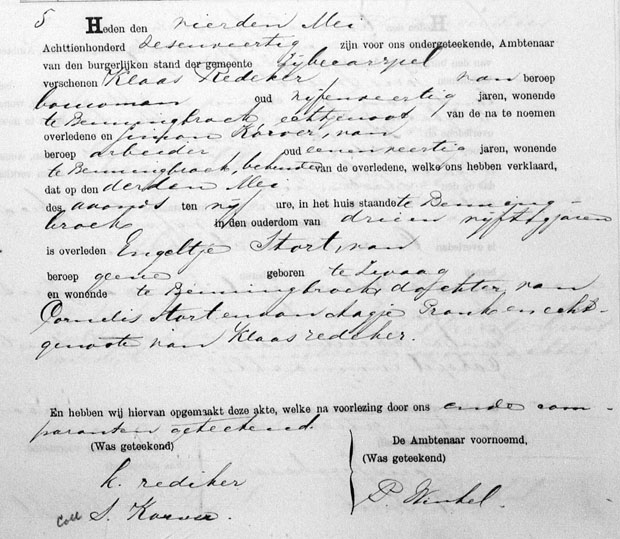 5 Heden den vierden Mei
Achttienhonderd sesenveertig zijn voor ons ondergeteekende, Ambtenaar
van den burgerlijken stand der gemeente Sijbecarspel
verschenen Klaas Redeker van beroep
bouwman oud vijfenveertig jaren, wonende
te Benningbroek echtgenoot van de na te noemen
overledene en Simon Korver, van
beroep arbeider oud eenenveertig jaren, wonende
te Benningbroek, bekende van de overledene, welke ons hebben verklaard,
dat op den derden Mei
des avonds ten vijf ure, in het huis staande te Benning-
broek in den ouderdom van drieen vijftig jaren
is overleden Engeltje Stort, van
beroep geene geboren te Zwaag
en wonende te Benningbroek, dochter van
Cornelis Stort en van Aagje Pronk en echt-
genoote van Klaas rediker.
En hebben wij hiervan opgemaakt deze akte, welke na voorlezing door ons en de com-
paranten geteekend.
(Was geteekend) De Ambtenaar voornoemd,
(Was geteekend)
k. rediker
P. Winkel.
Coll S. Korver.